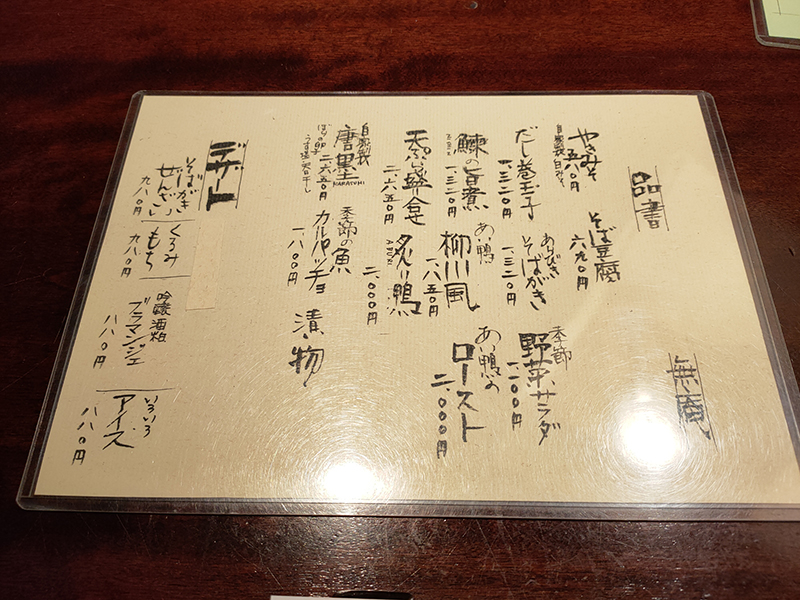 品書
無庵
やきみそ
五八〇円
自家製白みそ
そば豆腐
六九〇円
季節
野菜サラダ
一、二〇〇円
だし巻玉子
一、三二〇円
あらびき
そばがき
一、三二〇円
鰊の旨煮
一、三二〇円
あい鴨
柳川風
一、八五〇円
あい鴨の
ロースト
二、〇〇〇円
天ぷら盛合せ
二、六五〇円
炙り鴨
ABURI
二、〇〇〇円
自家製
唐墨
KARASUMI
ぼらの卵
うす塩天日干し
二、六五〇円
季節の魚
カルパッチョ
一、八〇〇円
漬物
デザート
そばがき
ぜんざい
九八〇円
くるみ
もち
九八〇円
吟醸酒粕
ブラマンジェ
八八〇円
いろいろ
アイス
八八〇円